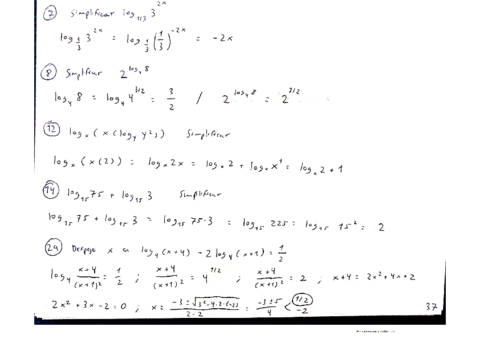 ⑦ Simplificar log_{1/3} 3^{2x}
log_{1/3} 3^{2x} = log_{1/3} (1/3)^{-2x} = -2x
⑧ Simplificar 2^{log_4 8}
log_4 8 = log_4 4^{3/2} = 3/2 / 2^{log_4 8} = 2^{3/2}
⑫ log_x (x (log_y y²)) Simplificar
log_x (x(2)) = log_x 2x = log_x 2 + log_x x^1 = log_x 2 + 1
⑭ log_{15} 75 + log_{15} 3 Simplificar
log_{15} 75 + log_{15} 3 = log_{15} 75·3 = log_{15} 225 = log_{15} 15² = 2
x en log_4 (x+4) - 2 log_4 (x+1) = 1/2
log_4 (x+4)/(x+1)² = 1/2 ; (x+4)/(x+1)² = 4^{1/2} ; (x+4)/(x+1)² = 2 ; x+4 = 2x²+4x+2
2x² + 3x - 2 = 0 ; x = (-3 ± √(3²-4·2·(-2)))/(2·2) = (-3±5)/4 < 1/2 -2
37